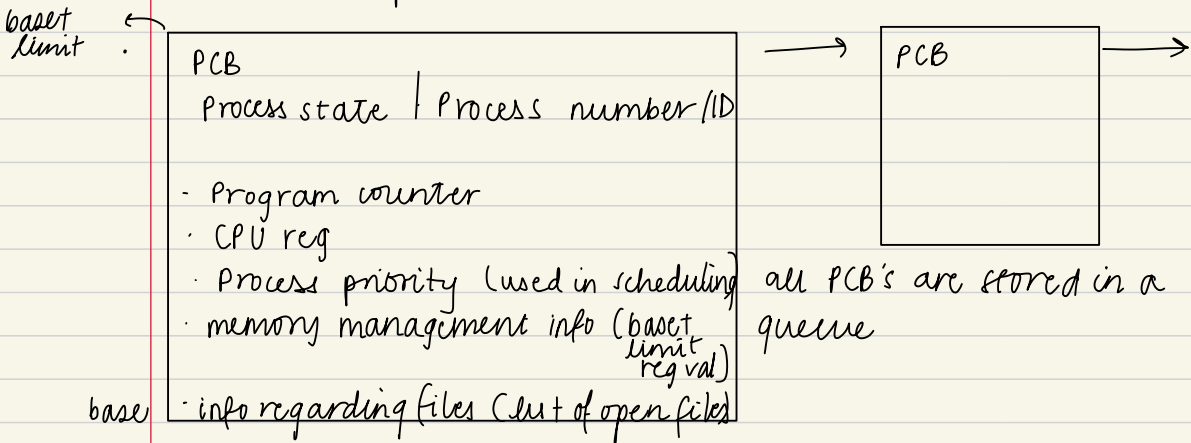 baset
limit
PCB
Process state | Process number/ID
· Program counter
· CPU reg
· Process priority (used in scheduling)
· memory management info (baset
limit
reg val)
base
· info regarding files (list of open files)
PCB
all PCB's are stored in a
queue